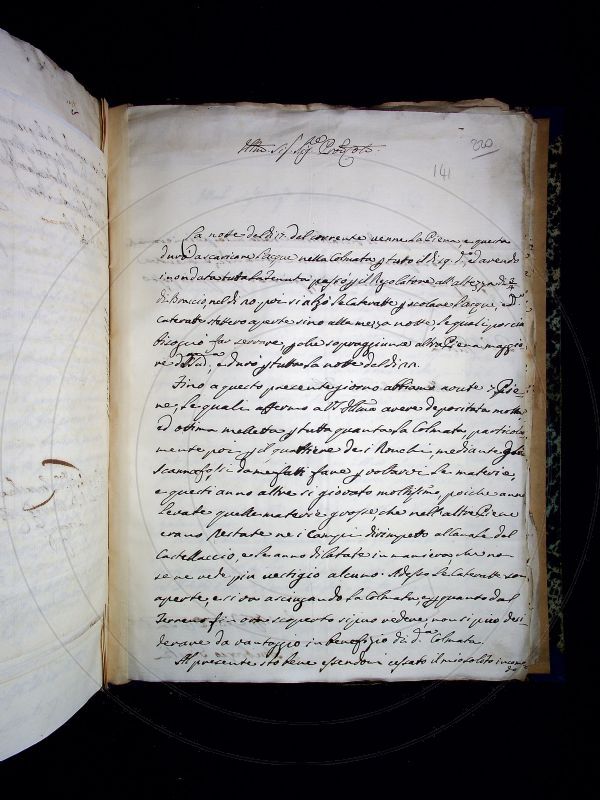 Illmo. Sig. Sig.
220
141
La notte del dì 17 del corrente venne la Piena, e questa
durò a scaricare l'acque nella Colmata p tutto il dì sp. d.o ed avendo
inondata tutta la Tenuta passò p il Regolatore all'altezza di 2/4
di Braccio, nel dì 20, poi si alzò le Cateratte p scolare l'acque, e d.e
Cateratte stettero aperte sino alla mezza notte, le quali poscia
bisognò far serrare p che sopraggiunse altra Piena maggio
re della sud.a, e durò p tutta la notte del dì 21.
Fino a questo presente giorno abbiamo avute 7 Pie
ne, le quali affermo a V.S. Illma avere depositata molta
ed ottima melletta p tutta quanta la Colmata, particolar
mente poi p il quartiere de i Ronchi, mediante gli
scannafossi da me fatti fare p voltarvi le materie,
e questi anno altresì giovato moltissimo poiche anno
levate quelle materie grosse, che nell'altre Piene
erano restate ne i Campi dirimpetto al Canale del
Castellaccio, e le anno dilatate in maniera, che non
se ne vede più vestigio alcuno. Adesso le Cateratte son
aperte, e si va asciugando la Colmata, e p quanto dal
Terreno fin ora scoperto si può vedere, non si può desi
derare da vantaggio in benefizio di d.a Colmata.
Al presente sto bene essendomi cessato il incomo
do